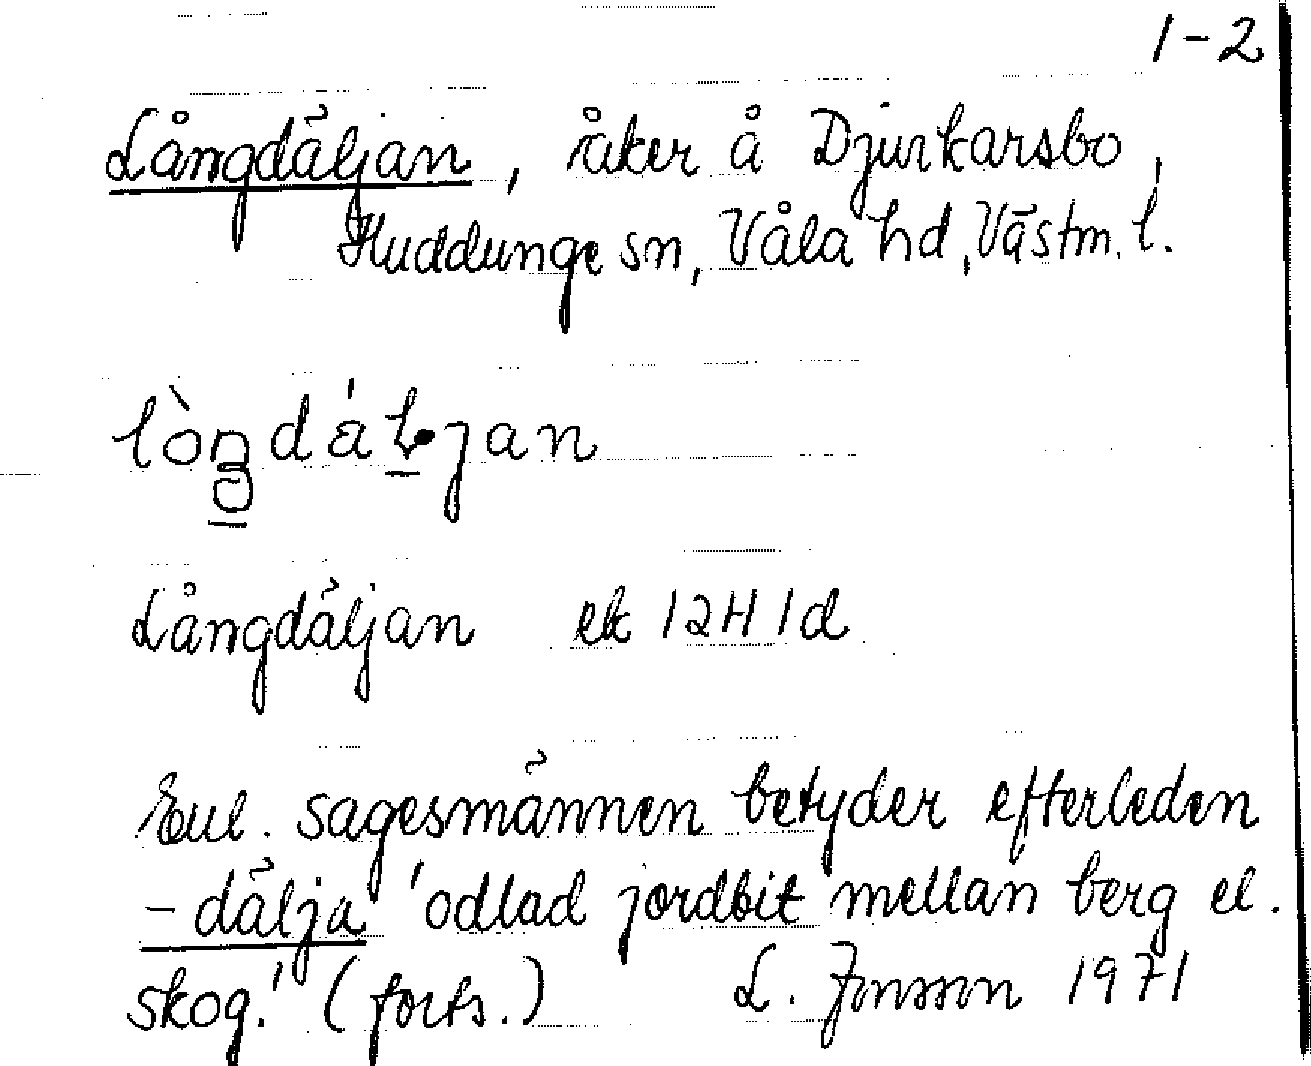 1-2
Långdäljan, åker å Djurkarsbo,
Huddunge sn, Våla hd, Västm. l.
Långdäljan ek 12H1d
Enl. sagesmännen betyder efterleden
-dälja 'odlad jordbit mellan berg el.
skog.' (forts.) L. Jonsson 1971